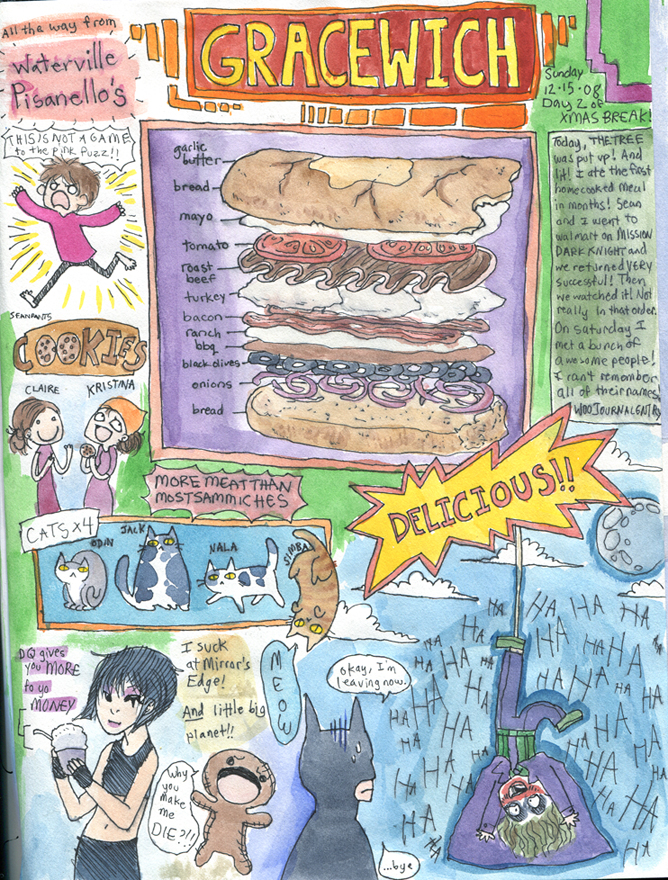 All the way from
Waterville
Pisanello's
GRACEWICH
Sunday
12·15·08
Day 2 of
XMAS BREAK!
THIS IS NOT A GAME
to the pink fuzz!!
SEANPANTS
garlic
butter
bread
mayo
tomato
roast
beef
turkey
bacon
ranch
bbq
black olives
onions
bread
Today, THE TREE
was put up! And
lit! I ate the first
homecooked meal
in months! Sean
and I went to
walmart on MISSION
DARK KNIGHT and
we returned VERY
successful! Then
we watched it! Not
really in that order.
On Saturday I
met a bunch of
awesome people!
I can't remember
all of their names
WOO JOURNAL
COOKIES
CLAIRE
KRISTINA
MORE MEAT THAN
MOST SAMMICHES
DELICIOUS!!
CATS x4
ODIN
JACK
NALA
SIMBA
MEOW
DQ gives
you MORE
to yo
MONEY
I suck
at Mirror's
Edge!
And little big
planet!!
Why
you
make
me
DIE?!!
okay, I'm
leaving now.
...bye
HA HA HA HA
HA HA HA HA
HA HA HA HA
HA HA HA HA
HA HA HA HA
HA HA HA HA